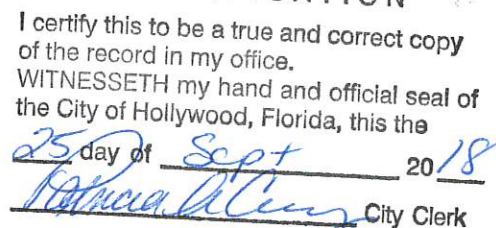 I certify this to be a true and correct copy
of the record in my office.
WITNESSETH my hand and official seal of
the City of Hollywood, Florida, this the
25 day of Sept 2018
Patricia A City Clerk